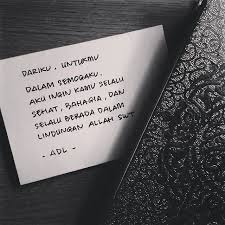 DARIKU, UNTUKMU
DALAM SEMOGAKU,
AKU INGIN KAMU SELALU
SEHAT, BAHAGIA, DAN
SELALU BERADA DALAM
LINDUNGAN ALLAH SWT
- ADL -